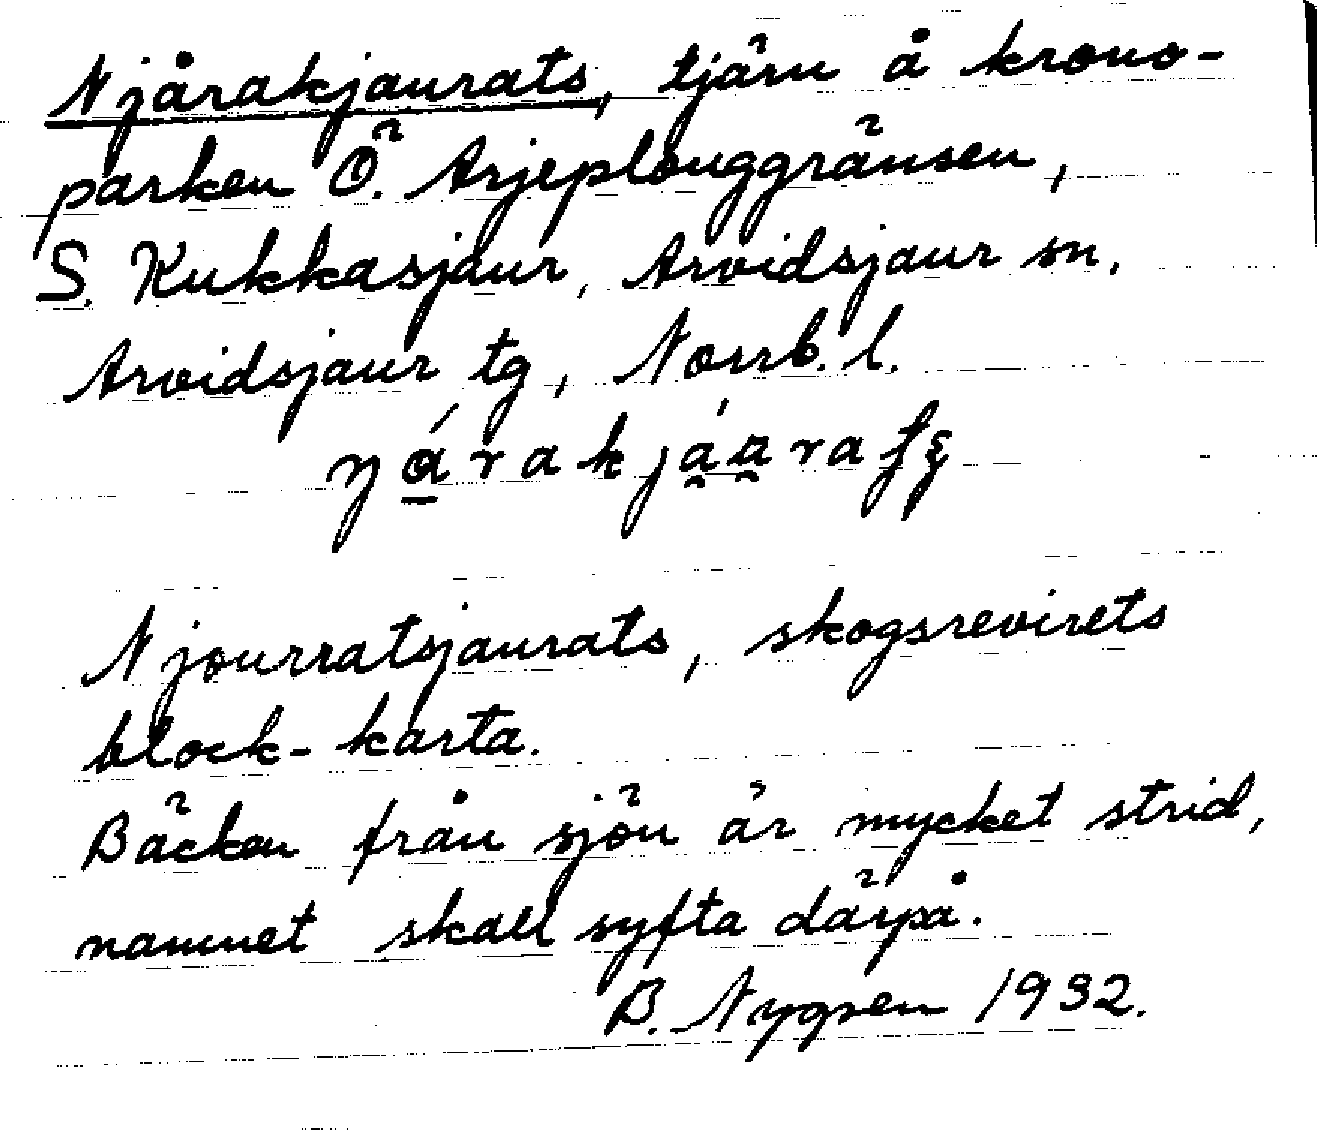 Njårakjaurats, tjärn å krono-
parken Ö. Arjeplouggränsen,
S. Kukkasjaur, Arvidsjaur sn,
Arvidsjaur tg, Norrb. l.
Njourratsjaurats, skogsrevirets
block-karta.
Bäcken från sjön är mycket strid,
namnet skall syfta därpå.
B. Nygren 1932.